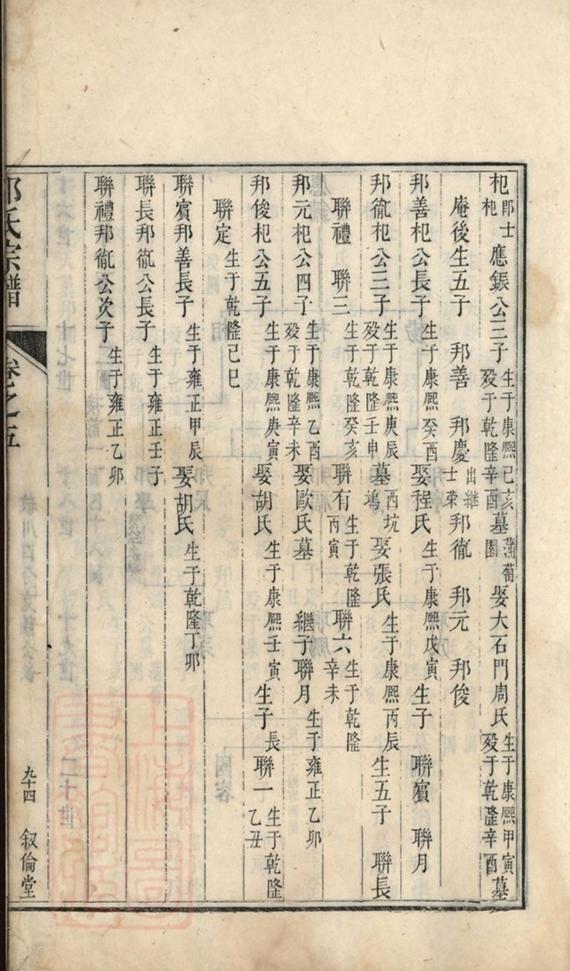 杞 即士杞 應鋠公三子 生于康熙己亥殁于乾隆辛酉 墓 蒲萄園 娶大石門周氏 生于康熙甲寅殁于乾隆辛酉 墓
庵後生五子 邦善 邦慶 出繼士榮 邦徿 邦元 邦俊
邦善杞公長子 生于康熙癸酉 娶程氏 生于康熙戊寅 生子 聯賓 聯月
邦徿杞公三子 生于康熙庚辰殁于乾隆壬申 墓 西坑 娶張氏 生于康熙丙辰 生五子 聯長
聯禮 聯三 生于乾隆癸亥 聯有 生于乾隆丙寅 聯六 生于乾隆辛未
邦元杞公四子 生于康熙乙酉殁于乾隆辛未 娶歐氏墓 繼子聯月 生于雍正乙卯
邦俊杞公五子 生于康熙庚寅 娶胡氏 生于康熙壬寅 生子 長 聯一 生于乾隆乙丑
聯定 生于乾隆己巳
聯賓邦善長子 生于雍正甲辰 娶胡氏 生于乾隆丁卯
聯長邦徿公長子 生于雍正壬子
聯禮邦徿公次子 生于雍正乙卯
氏宗譜 卷之五 九十四 叙倫堂